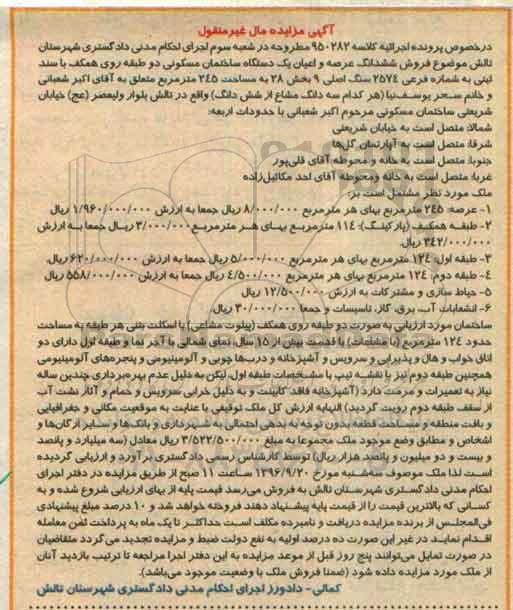 آگهی مزایده مال غیرمنقول
درخصوص پرونده اجرائیه کلاسه ۹۵۰۲۸۲ مطروحه در شعبه سوم اجرای احکام مدنی دادگستری شهرستان
تالش موضوع فروش ششدانگ عرصه و اعیان یک دستگاه ساختمان مسکونی دو طبقه روی همکف با سند
ثبتی به شماره فرعی ۲۵۷۴ سنگ اصلی ۹ بخش ۲۸ به مساحت ۲۴۵ مترمربع متعلق به آقای اکبر شعبانی
و خانم سحر یوسف‌نیا (هر کدام سه دانگ مشاع از شش دانگ) واقع در تالش بلوار ولیعصر (عج) خیابان
شریعتی ساختمان مسکونی مرحوم اکبر شعبانی با حدودات اربعه:
شمالا: متصل است به خیابان شریعتی
شرقا: متصل است به آپارتمان گل‌ها
جنوبا: متصل است به خانه و محوطه آقای قلی‌پور
غربا: متصل است به خانه ومحوطه آقای احد مکائیل‌زاده
ملک مورد نظر مشتمل است بر:
۱- عرصه: ۲۴۵ مترمربع بهای هر مترمربع ۸/۰۰۰/۰۰۰ ریال جمعا به ارزش ۱/۹۶۰/۰۰۰/۰۰۰ ریال
۲- طبقه همکف (پارکینگ): ۱۱٤ مترمربع بهای هر مترمربع ۳/۰۰۰/۰۰۰ ریال جمعا به ارزش
۳٤۲/۰۰۰/۰۰۰ ریال.
۳- طبقه اول: ۱۲٤ مترمربع بهای هر مترمربع ۵/۰۰۰/۰۰۰ ریال جمعا به ارزش ۶۲۰/۰۰۰/۰۰۰ ریال.
٤- طبقه دوم: ۱۲٤ مترمربع بهای هر مترمربع ٤/۵۰۰/۰۰۰ ریال جمعا به ارزش ۵۵۸/۰۰۰/۰۰۰ ریال
۵- حیاط سازی و مشترکات به ارزش ۱۲/۵۰۰/۰۰۰ ریال
۶- انشعابات آب، برق، گاز، تاسیسات و جمعا ۳۰/۰۰۰/۰۰۰ ریال.
ساختمان مورد ارزیابی به صورت دو طبقه روی همکف (پیلوت مشاعی) با اسکلت بتنی هر طبقه به مساحت
حدود ۱۲٤ مترمربع (با مشاعات) با قدمت بیش از ۱۵ سال، نمای شمالی با آجر نما و طبقه اول دارای دو
اتاق خواب و هال و پذیرایی و سرویس و آشپزخانه و درب‌ها چوبی و آلومینیومی و پنجره‌های آلومینیومی
همچنین طبقه دوم نیز با نقشه تیپ با مشخصات طبقه اول، لیکن به دلیل عدم بهره‌برداری چندین ساله
نیاز به تعمیرات و مرمت دارد (آشپزخانه فاقد کابینت و به دلیل خرابی سرویس و حمام و آثار نشت آب
از سقف طبقه دوم رویت گردید) النهایه ارزش کل ملک توقیفی با عنایت به موقعیت مکانی و جغرافیایی
و بافت منطقه و مساحت قطعه بدون توجه به بدهی احتمالی به شهرداری و بانک‌ها و سایر ارگان‌ها و
اشخاص و مطابق وضع موجود ملک مجموعا به مبلغ ۳/۵۲۲/۵۰۰/۰۰۰ ریال معادل (سه میلیارد و پانصد
و بیست و دو میلیون و پانصد هزار ریال) توسط کارشناس رسمی دادگستری برآورد و ارزیابی گردیده
است لذا ملک موصوف سه‌شنبه مورخ ۱۳۹۶/۹/۲۰ ساعت ۱۱ صبح از طریق مزایده در دفتر اجرای
احکام مدنی دادگستری شهرستان تالش به فروش می‌رسد قیمت پایه از بهای ارزیابی شروع شده و به
کسانی که بالاترین قیمت را از قیمت پایه پیشنهاد دهند فروخته خواهد شد و ۱۰ درصد مبلغ پیشنهادی
فی‌المجلس از برنده مزایده دریافت و نامبرده مکلف است حداکثر تا یک ماه به پرداخت ثمن معامله
اقدام نمایند در غیر این صورت ده درصد اولیه به نفع دولت ضبط و مزایده تجدید می‌گردد متقاضیان
در صورت تمایل می‌توانند پنج روز قبل از موعد مزایده به این دفتر اجرا مراجعه تا ترتیب بازدید آنان
از ملک مورد مزایده داده شود (ضمنا فروش ملک با وضعیت موجود می‌باشد).
کمالی- دادورز اجرای احکام مدنی دادگستری شهرستان تالش